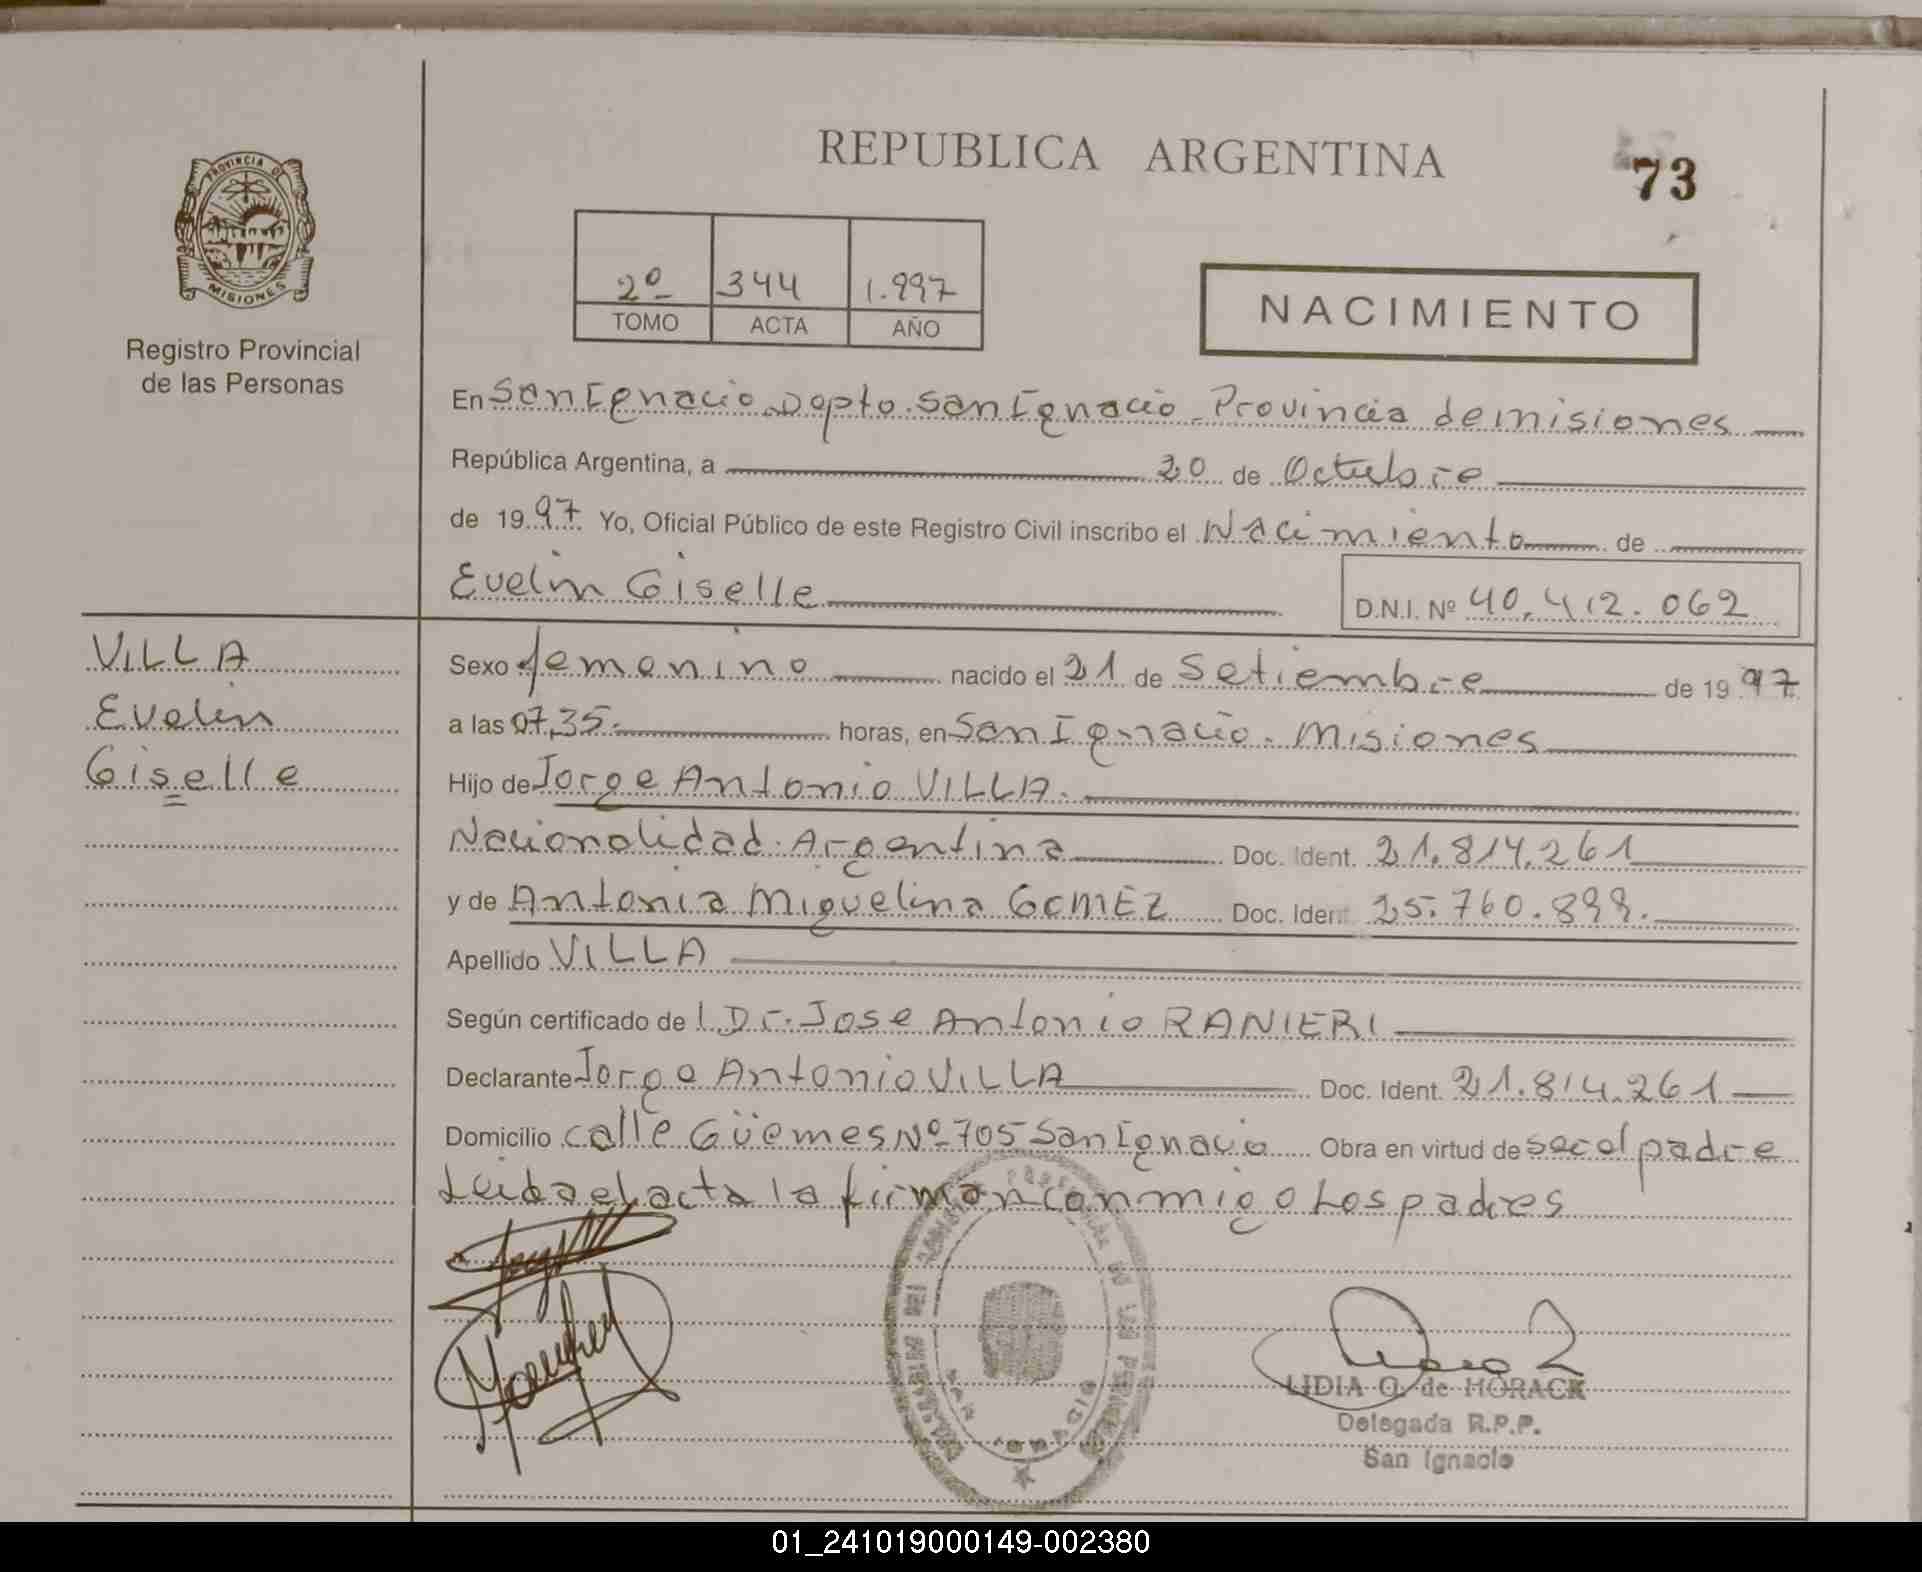 PROVINCIA DE
MISIONES
Registro Provincial
de las Personas
REPUBLICA ARGENTINA
73
2º 344 1.997
TOMO ACTA AÑO
NACIMIENTO
En San Ignacio Dpto. San Ignacio. Provincia de misiones
República Argentina, a 20 de Octubre
de 1997 Yo, Oficial Público de este Registro Civil inscribo el Nacimiento de
Evelin Giselle D.N.I. Nº 40.412.062
VILLA
Evelin
Giselle
Sexo femenino nacido el 21 de Setiembre de 1997
a las 07,35. horas, en San Ignacio. Misiones
Hijo de Jorge Antonio VILLA.
Nacionalidad. Argentina Doc. Ident. 21.814.261
y de Antonia Miguelina GOMEZ Doc. Ident. 25.760.899.
Apellido VILLA
Según certificado del Dr. Jose Antonio RANIERI
Declarante Jorge Antonio VILLA Doc. Ident. 21.814.261
Domicilio calle Güemes Nº 705 San Ignacio Obra en virtud de ser el padre
Leida el acta la firman conmigo Los padres
LIDIA O. de HORACK
Delegada R.P.P.
San Ignacio
01_241019000149-002380